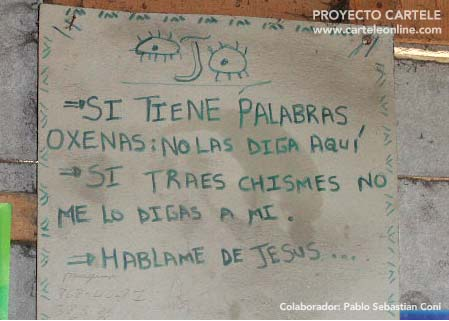 PROYECTO CARTELE
www.carteleonline.com
OJO
⇒SI TIENE PALABRAS
OXENAS; NO LAS DIGA AQUÍ
⇒SI TRAES CHISMES NO
ME LO DIGAS A MI.
⇒HABLAME DE JESUS....
Colaborador: Pablo Sebastián Coni